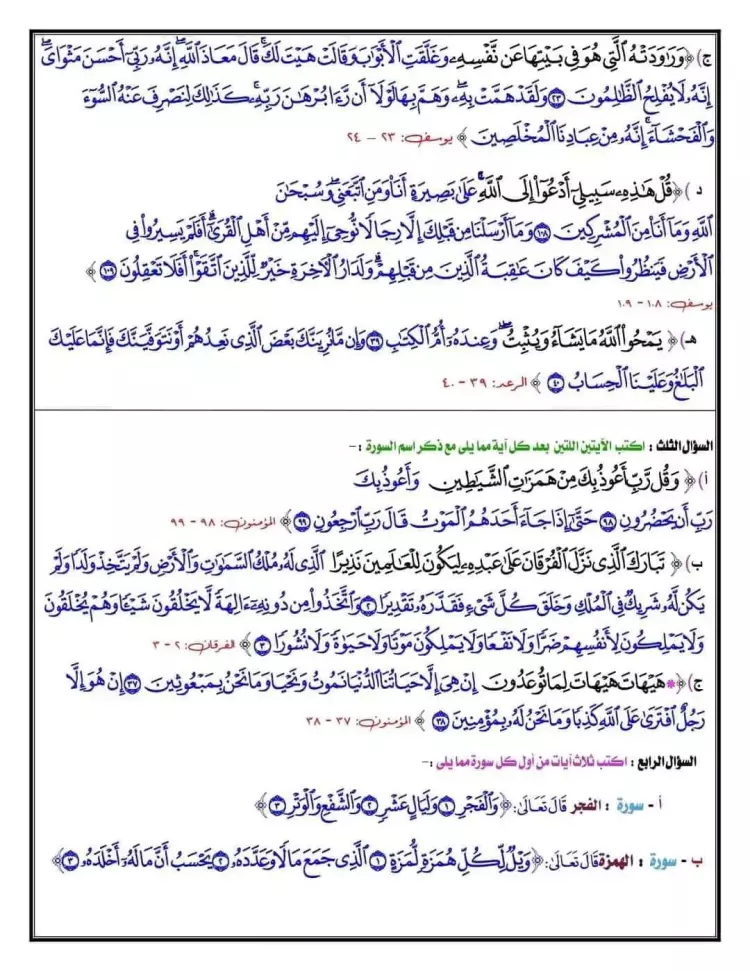 ج) ﴿وَرَاوَدَتْهُ الَّتِي هُوَ فِي بَيْتِهَا عَن نَّفْسِهِ وَغَلَّقَتِ الْأَبْوَابَ وَقَالَتْ هَيْتَ لَكَ ۚ قَالَ مَعَاذَ اللَّهِ ۖ إِنَّهُ رَبِّي أَحْسَنَ مَثْوَايَ ۖ
إِنَّهُ لَا يُفْلِحُ الظَّالِمُونَ ٢٣ وَلَقَدْ هَمَّتْ بِهِ ۖ وَهَمَّ بِهَا لَوْلَا أَن رَّءَا بُرْهَانَ رَبِّهِ ۚ كَذَٰلِكَ لِنَصْرِفَ عَنْهُ السُّوءَ
وَالْفَحْشَاءَ ۚ إِنَّهُ مِنْ عِبَادِنَا الْمُخْلَصِينَ ﴾ يوسف: ٢٣ – ٢٤
د ) ﴿قُلْ هَٰذِهِ سَبِيلِي أَدْعُو إِلَى اللَّهِ ۚ عَلَىٰ بَصِيرَةٍ أَنَا وَمَنِ اتَّبَعَنِي ۖ وَسُبْحَانَ
اللَّهِ وَمَا أَنَا مِنَ الْمُشْرِكِينَ ١٠٨ وَمَا أَرْسَلْنَا مِن قَبْلِكَ إِلَّا رِجَالًا نُّوحِي إِلَيْهِم مِّنْ أَهْلِ الْقُرَىٰ ۗ أَفَلَمْ يَسِيرُوا فِي
الْأَرْضِ فَيَنظُرُوا كَيْفَ كَانَ عَاقِبَةُ الَّذِينَ مِن قَبْلِهِمْ ۗ وَلَدَارُ الْآخِرَةِ خَيْرٌ لِّلَّذِينَ اتَّقَوْا ۗ أَفَلَا تَعْقِلُونَ ١٠٩ ﴾
يوسف: ١٠٨ – ١٠٩
هـ) ﴿ يَمْحُوا اللَّهُ مَا يَشَاءُ وَيُثْبِتُ ۖ وَعِندَهُ أُمُّ الْكِتَابِ ٣٩ وَإِن مَّا نُرِيَنَّكَ بَعْضَ الَّذِي نَعِدُهُمْ أَوْ نَتَوَفَّيَنَّكَ فَإِنَّمَا عَلَيْكَ
الْبَلَاغُ وَعَلَيْنَا الْحِسَابُ ٤٠ ﴾ الرعد: ٣٩ – ٤٠
السؤال الثلث : اكتب الآيتين اللتين بعد كل آية مما يلى مع ذكر اسم السورة :-
أ) ﴿ وَقُل رَّبِّ أَعُوذُ بِكَ مِنْ هَمَزَاتِ الشَّيَاطِينِ وَأَعُوذُ بِكَ
رَبِّ أَن يَحْضُرُونِ ٩٨ حَتَّىٰ إِذَا جَاءَ أَحَدَهُمُ الْمَوْتُ قَالَ رَبِّ ارْجِعُونِ ٩٩ ﴾ المؤمنون: ٩٨ – ٩٩
ب) ﴿ تَبَارَكَ الَّذِي نَزَّلَ الْفُرْقَانَ عَلَىٰ عَبْدِهِ لِيَكُونَ لِلْعَالَمِينَ نَذِيرًا الَّذِي لَهُ مُلْكُ السَّمَاوَاتِ وَالْأَرْضِ وَلَمْ يَتَّخِذْ وَلَدًا وَلَمْ
يَكُن لَّهُ شَرِيكٌ فِي الْمُلْكِ وَخَلَقَ كُلَّ شَيْءٍ فَقَدَّرَهُ تَقْدِيرًا ٢ وَاتَّخَذُوا مِن دُونِهِ آلِهَةً لَّا يَخْلُقُونَ شَيْئًا وَهُمْ يُخْلَقُونَ
وَلَا يَمْلِكُونَ لِأَنفُسِهِمْ ضَرًّا وَلَا نَفْعًا وَلَا يَمْلِكُونَ مَوْتًا وَلَا حَيَاةً وَلَا نُشُورًا ٣ ﴾ الفرقان: ٢ – ٣
ج) ﴿* هَيْهَاتَ هَيْهَاتَ لِمَا تُوعَدُونَ إِنْ هِيَ إِلَّا حَيَاتُنَا الدُّنْيَا نَمُوتُ وَنَحْيَا وَمَا نَحْنُ بِمَبْعُوثِينَ ٣٧ إِنْ هُوَ إِلَّا
رَجُلٌ افْتَرَىٰ عَلَى اللَّهِ كَذِبًا وَمَا نَحْنُ لَهُ بِمُؤْمِنِينَ ٣٨ ﴾ المؤمنون: ٣٧ – ٣٨
السؤال الرابع : اكتب ثلاث آيات من أول كل سورة مما يلى :-
أ - سورة : الفجر قَالَ تَعَالَىٰ: ﴿ وَالْفَجْرِ ١ وَلَيَالٍ عَشْرٍ ٢ وَالشَّفْعِ وَالْوَتْرِ ٣ ﴾
ب - سورة : الهمزة قَالَ تَعَالَىٰ: ﴿ وَيْلٌ لِّكُلِّ هُمَزَةٍ لُّمَزَةٍ ١ الَّذِي جَمَعَ مَالًا وَعَدَّدَهُ ٢ يَحْسَبُ أَنَّ مَالَهُ أَخْلَدَهُ ٣ ﴾